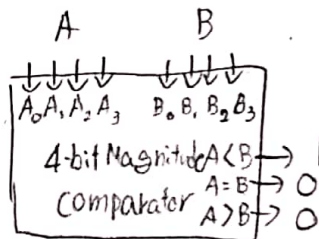 A B
A₀ A₁ A₂ A₃ B₀ B₁ B₂ B₃
4-bit Magnitude A<B → 1
A=B → 0
comparator A>B → 0